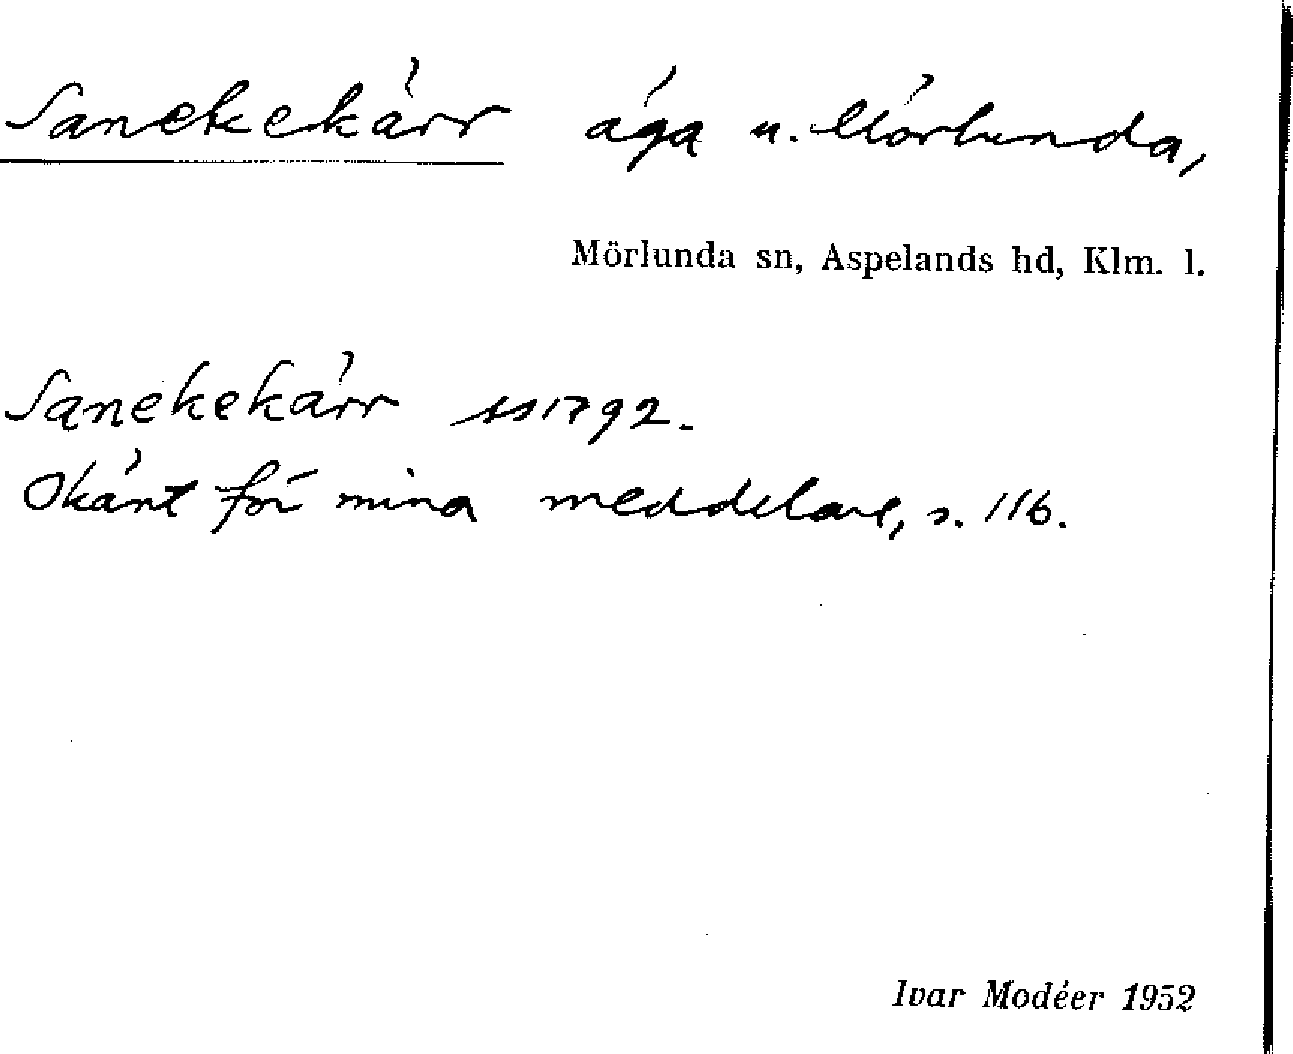 Sanekekärr äga u. Mörlunda,
Mörlunda sn, Aspelands hd, Klm. l.
Sanekekärr ss 1792.
Okänt för mina meddelare, s. 116.
Ivar Modéer 1952